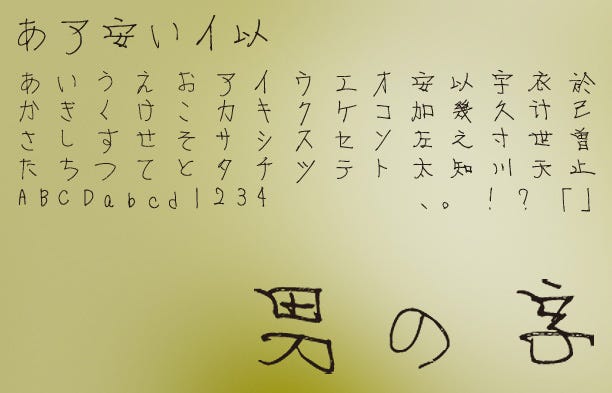 あア安いイ以
あ い う え お ア イ ウ エ オ 安 以 宇 衣 於
か き く け こ カ キ ク ケ コ 加 幾 久 计 己
さ し す せ そ サ シ ス セ ソ 左 之 寸 世 曽
た ち つ て と タ チ ツ テ ト 太 知 川 天 止
A B C D a b c d 1 2 3 4 、 。 ! ? 「 」
男の字